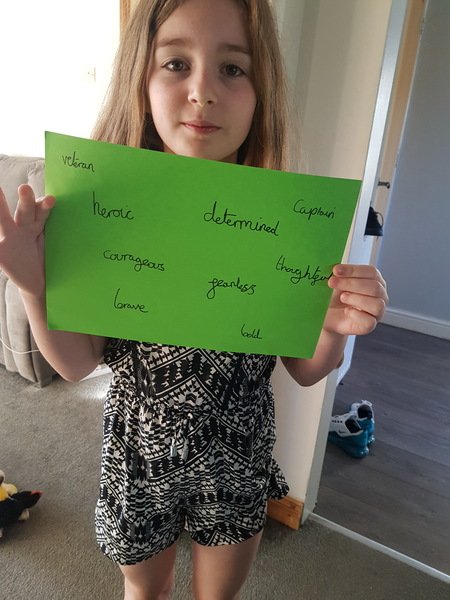 veteran
Captain
heroic
determined
courageous
thoughtful
fearless
brave
bold